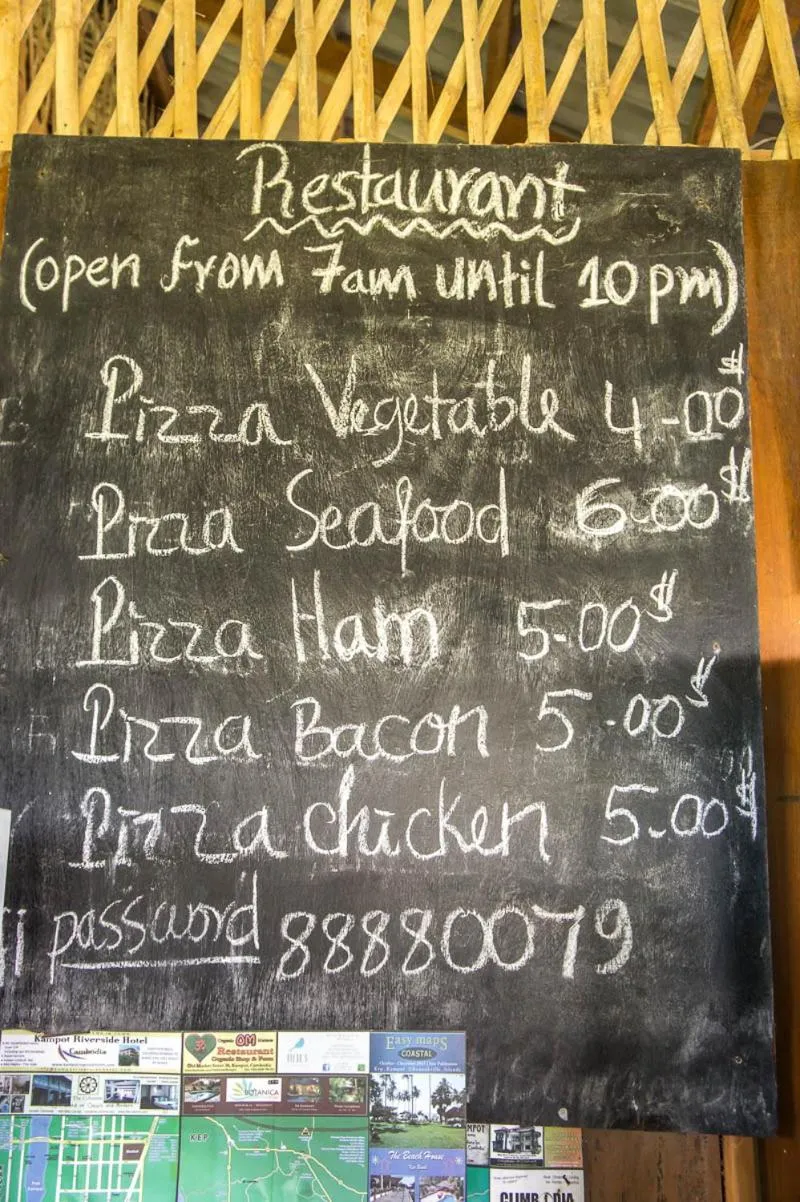 Restaurant
(open from 7am until 10pm)
Pizza Vegetable 4-00$
Pizza Seafood 6-00$
Pizza Ham 5-00$
Pizza Bacon 5-00$
Pizza chicken 5-00$
password 88880079
Kampot Riverside Hotel
Cambodia
Organic OM
Restaurant
Organic Shop & Farm
BOTANICA
KEP
Easy maps
COASTAL
The Beach House
CLIMB